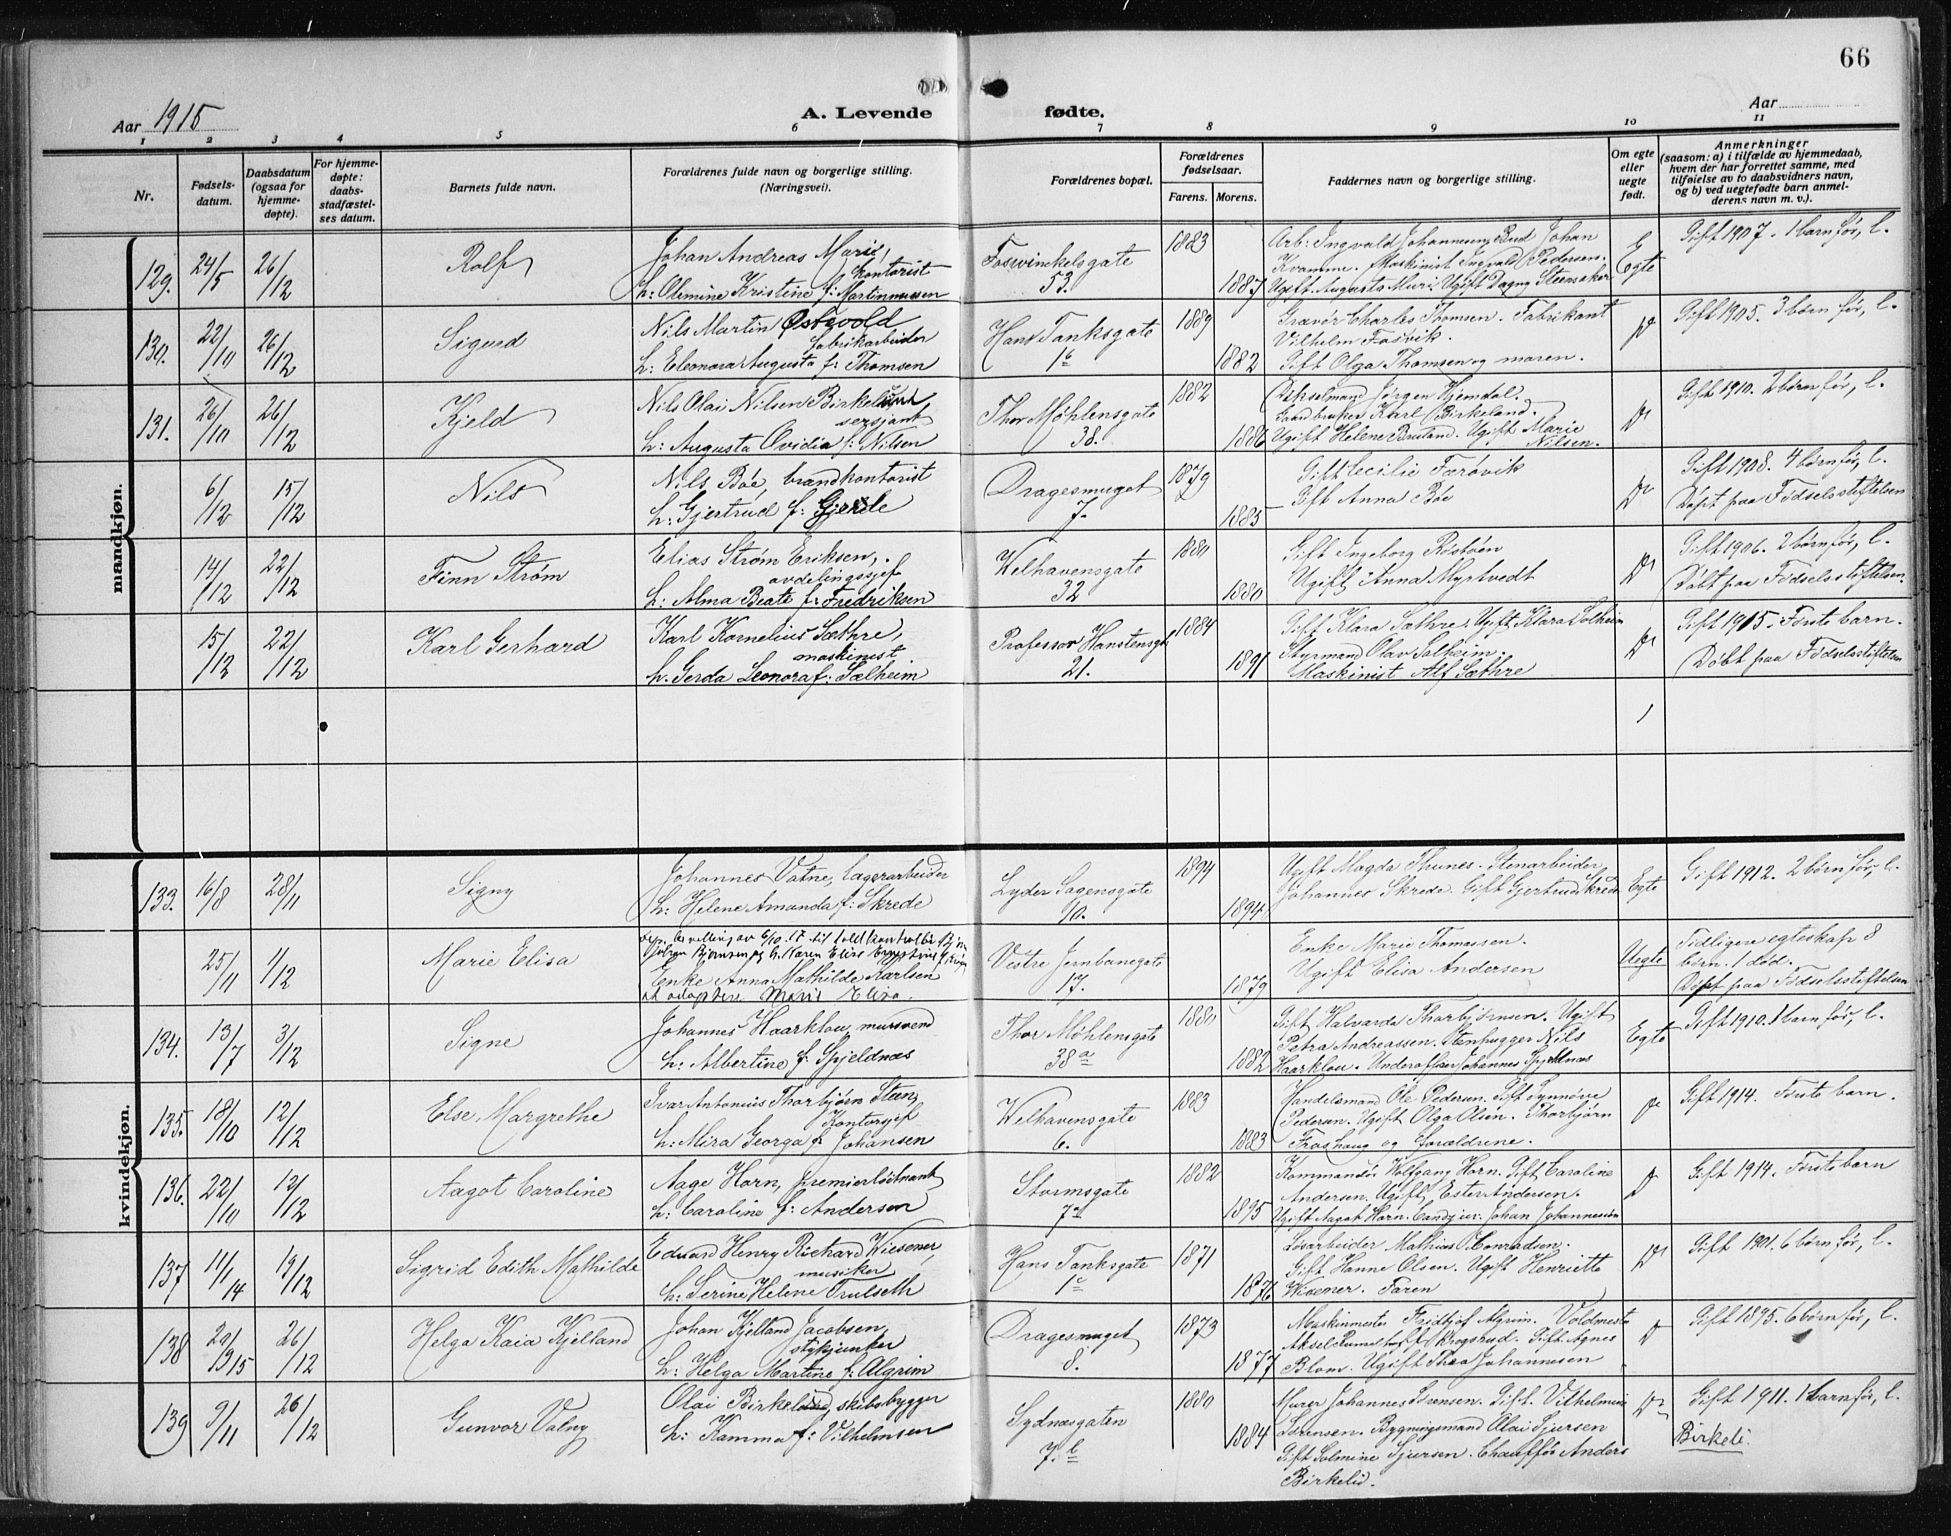 66
Aar 1915
A. Levende fødte.
Aar
1 2 3 4 5 6 7 8 9 10 11
Nr.
Fødsels-
datum.
Daabsdatum
(ogsaa for
hjemme-
døpte).
For hjemme-
døpte:
daabs-
stadfæstel-
ses datum.
Barnets fulde navn.
Forældrenes fulde navn og borgerlige stilling.
(Næringsvei).
Forældrenes bopæl.
Forældrenes
fødselsaar.
Farens. Morens.
Faddernes navn og borgerlige stilling.
Om egte
eller
uegte
født.
Anmerkninger
(saasom: a) i tilfælde av hjemmedaab,
hvem der har forrettet samme, med
tilføielse av to daabsvidners navn,
og b) ved uegtefødte barn anmel-
derens navn m. v.).
mandkjøn.
129. 24/5 26/12 Rolf
Johan Andreas Marie,
kontorist
h: Olemine Kristine f: Martinmussen
Foswinckelsgate
53.
1883
1887
Arb: Ingvald Johannesen, Bud Johan
Kvamme. Maskinist Ingvald Pedersen.
Ugift Augusta Muri. Ugift Dagny Stensaker
Egte
Gift 1907. 1 barn før, l.
130. 22/10 26/12 Sigurd
Nils Martin Østevold
fabrikarbeider
h: Eleonora Augusta f: Thomsen
Hans Tanksgate
1c
1889
1882
Gravør Charles Thomsen. Fabrikant
Vilhelm Fosvik.
Gift Olga Thomsen og moren.
Do
Gift 1905. 3 børn før, l.
131. 26/10 26/12 Kjeld
Nils Olai Nilsen Birkelund
sersjant
h: Augusta Ovidia f: Nilsen
Thor Møhlensgate
38.
1882
1886
Opselmand Jørgen Hjemdal.
Gaardbruker Karl Birkeland.
Ugift Helene Bruland. Ugift Marie
Nilsen.
Do
Gift 1910. 2 børn før, l.
6/12 15/12 Nils
Nils Bøe, brandkontorist
h: Gjertrud f: Gjerde
Dragesmuget
7.
1879
1885
Gift Cecilie Førøvik
Gift Anna Bøe
Do
Gift 1908. 4 børn før, l.
Døpt paa Fødselsstiftelsen
14/12 22/12 Finn Strøm
Elias Strøm Eriksen,
avdelingssjef
h: Alma Beate f: Fredriksen
Welhavensgate
32
1880
1880
Gift Ingeborg Røsbøen
Ugift Anna Myrtvedt
Do
Gift 1906. 2 børn før, l.
Døbt paa Fødselsstiftelsen.
15/12 22/12 Karl Gerhard
Karl Kornelius Sæthre,
maskinist
h. Gerda Leonora f: Sælheim
Professor Hanstensgt
21.
1884
1891
Gift Klara Sæthre. Ugift Klara Solheim
Styrmand Olav Solheim.
Maskinist Alf Sæthre
Do
Gift 1915. Første barn.
Døbt paa Fødselsstiftelsen
kvindekjøn.
133. 16/8 28/11 Signy
Johannes Vatne, lagerarbeider
h: Helene Amanda f: Skrede
Lyder Sagensgate
10.
1894
1894
Ugift Magda Thunes. Stenarbeider
Johannes Skrede. Gift Gjertrud Skrede
Egte
Gift 1912. 2 børn før, l.
25/11 1/12 Marie Elisa
bevilling av 6/10.17 til toldkontrollør
Enke Anna Mathilde Karlsen
at adoptere Marie Elisa.
Vestre Jernbanegate
17.
1879
Enke Marie Thomassen.
Ugift Elisa Andersen
Uegte
Tidligere egteskap 8
børn. 1 død.
Døpt paa Fødselsstiftelsen
134. 13/7 3/12 Signe
Johannes Haarklou, mursvend
h: Albertine f: Spjeldnæs
Thor Møhlensgate
38a
1880
1882
Gift Halvarda Thorbjørnsen. Ugift
Petra Andreassen. Stenhugger Nils
Haarklou. Underofficer Johannes Spjeldnæs
Egte
Gift 1910. 1 barn før, l.
135. 18/10 12/12 Else Margrethe
Ivar Antonius Thorbjørn Steen,
Kontorsjef
h: Mira Georga f: Johansen
Welhavensgate
6.
1883
1883
Handelsmand Ole Pedersen. Gift Synnøve
Pedersen. Ugift Olga Olsen. Thorbjørn
Froshaug og Forældrene.
Do
Gift 1914. Første barn.
136. 22/10 12/12 Aagot Caroline
Aage Horn, premierløitnant
h: Caroline f: Andersen
Stormsgate
7d
1882
1895
Kommandør Wolfgang Horn. Gift Caroline
Andersen. Ugift Ester Andersen.
Ugift Aagot Horn. Cand jur. Johan Johannessen
Do
Gift 1914. Første barn
137 11/1 14 19/12 Sigrid Edith Mathilde
Eduard Henry Richard Wiesener,
musiker
h: Serine Helene Trulseth
Hans Tanksgate
1c
1871
1876
Løsarbeider Mathias Conradsen.
Gift Hanne Olsen. Ugift Henriette
Wiesener. Faren
Do
Gift 1901. 6 børn før, l.
138 29/9 15 26/12 Helga Kaia Kjelland
Johan Kjelland Jacobsen,
stykjunker
h: Helga Martine f: Algrim
Dragesmuget
8.
1873
1877
Maskinmester Fridtjof Algrim. Voldmester
Aksel Rumelhoff. Krogsrud. Gift Agnes
Blom. Ugift Thea Johannesen
Do
Gift 1895. 6 børn før, l.
139 9/11 26/12 Gunvor Valny
Olai Birkeland, skibsbygger
h: Kamma f: Vilhelmsen
Sydnæsgaten
7.b
1880
1884
Murer Johannes Sørensen. Gift Vilhelmine
Sørensen. Bygningsmand Olai Sjursen
Gift Solmine Sjursen. Chauffør Anders
Birkelid.
Do
Gift 1911. 1 barn før, l.
Birkeli.